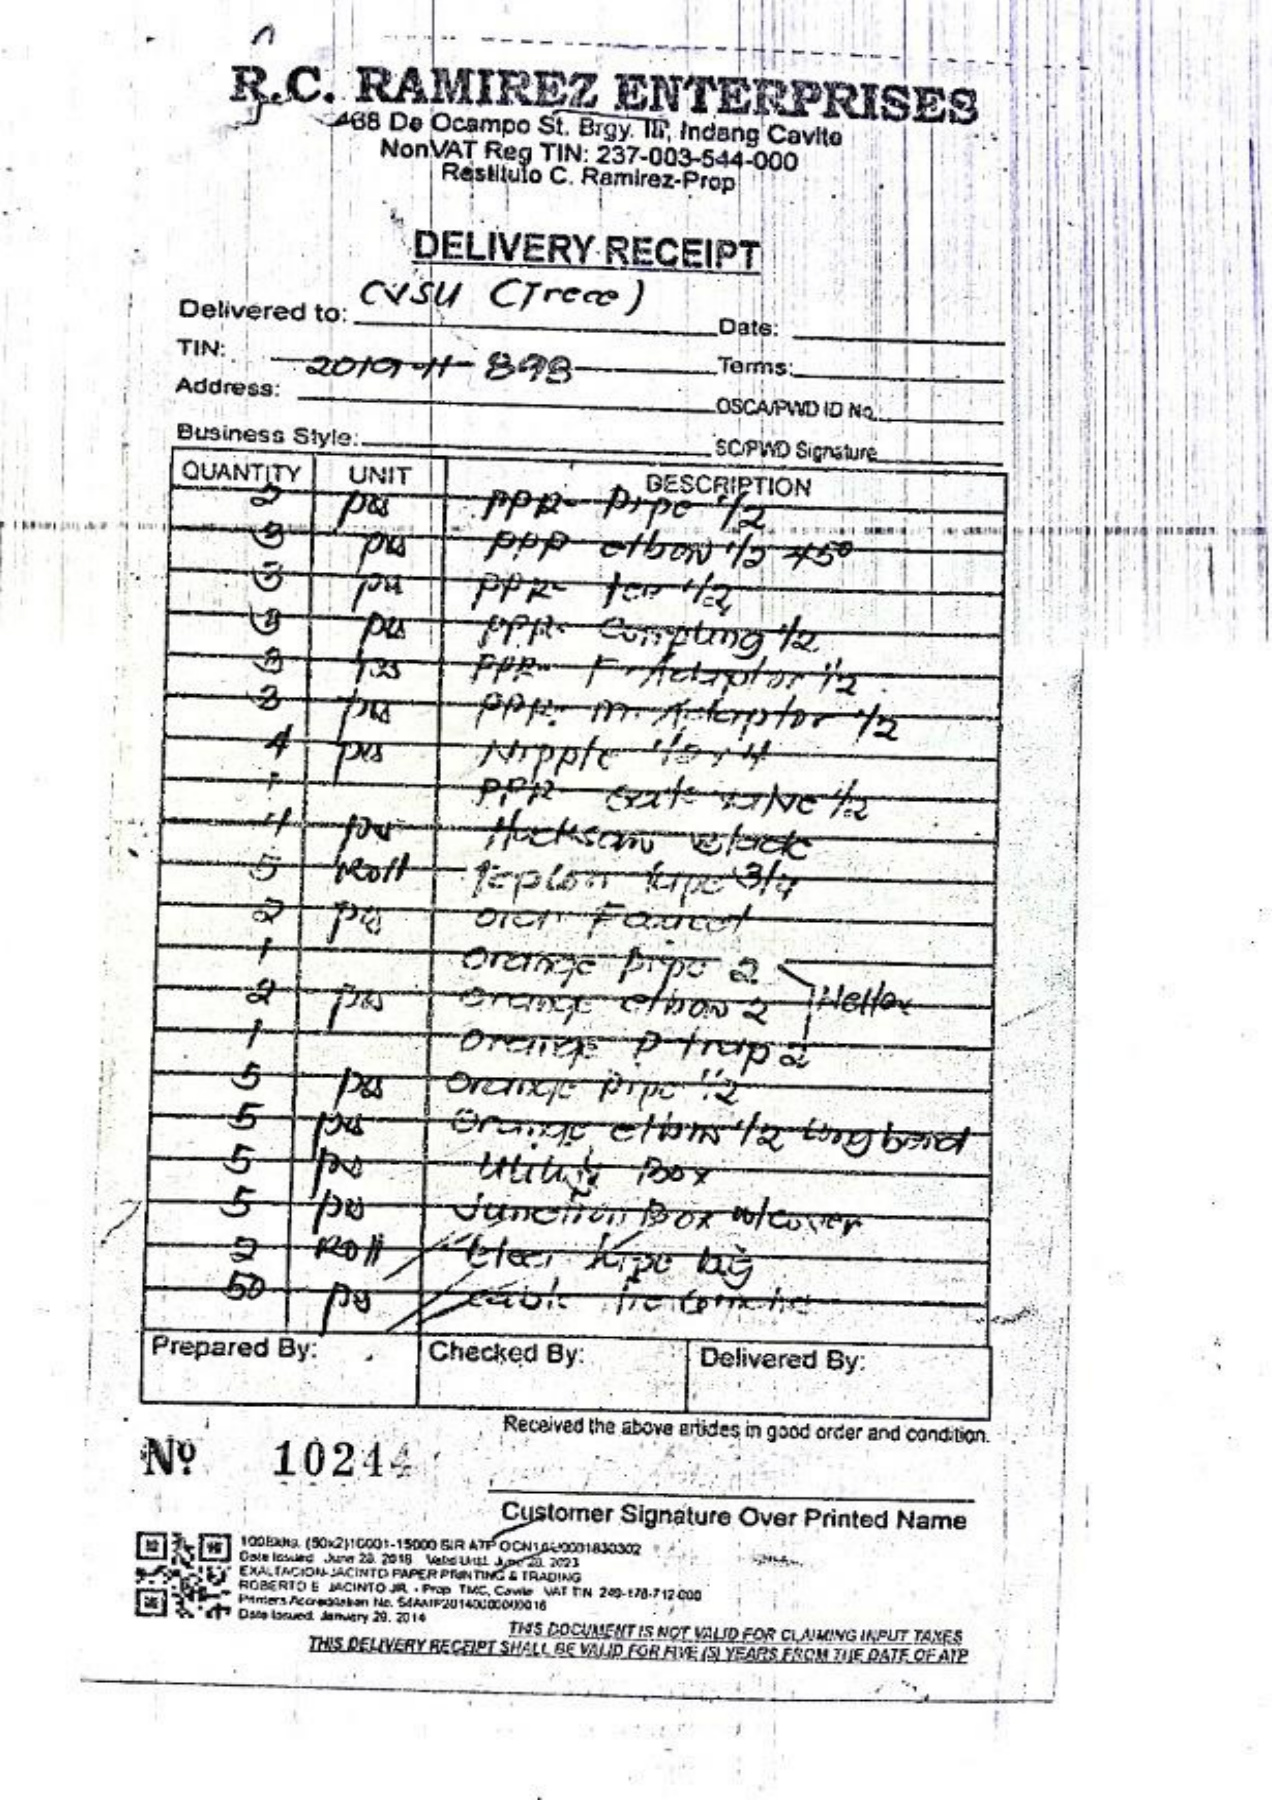 R.C. RAMIREZ ENTERPRISES
468 De Ocampo St. Brgy. III, Indang Cavite
NonVAT Reg TIN: 237-003-544-000
Restituto C. Ramirez-Prop
DELIVERY RECEIPT
Delivered to: CVSU (Trece) Date:
TIN: 2019-11-898 Terms:
Address: OSCA/PWD ID No.
Business Style: SC/PWD Signature
QUANTITY UNIT DESCRIPTION
2 pcs PPR- Pipe 1/2
3 pcs PPR elbow 1/2 45°
3 pcs PPR- tee 1/2
3 pcs PPR- Coupling 1/2
3 pcs PPR- F-Adaptor 1/2
3 pcs PPR- M-Adaptor 1/2
4 pcs Nipple 1/2 x 4
1 PPR- Gate valve 1/2
4 pcs Hacksaw blade
5 Roll Teplon tape 3/4
2 pcs Faucet
1 Orange pipe 2
2 pcs Orange elbow 2
1 Orange P trap 2
5 pcs Orange pipe 1/2
5 pcs Orange elbow 1/2 long bend
5 pcs Utility Box
5 pcs Junction Box w/cover
2 Roll tape big
50 pcs cable tie
Prepared By: Checked By: Delivered By:
Received the above articles in good order and condition.
Nº 10244
Customer Signature Over Printed Name
100Bklts. (50x2)10001-15000 BIR ATP
Date Issued June 28, 2018 Valid Until June 28, 2023
EXALTACION-JACINTO PAPER PRINTING & TRADING
ROBERTO E. JACINTO JR. - Prop TMC, Cavite VAT TIN 249-178-712-000
Printers Accreditation No.
Date Issued. January 29, 2014
THIS DOCUMENT IS NOT VALID FOR CLAIMING INPUT TAXES
THIS DELIVERY RECEIPT SHALL BE VALID FOR FIVE (5) YEARS FROM THE DATE OF ATP